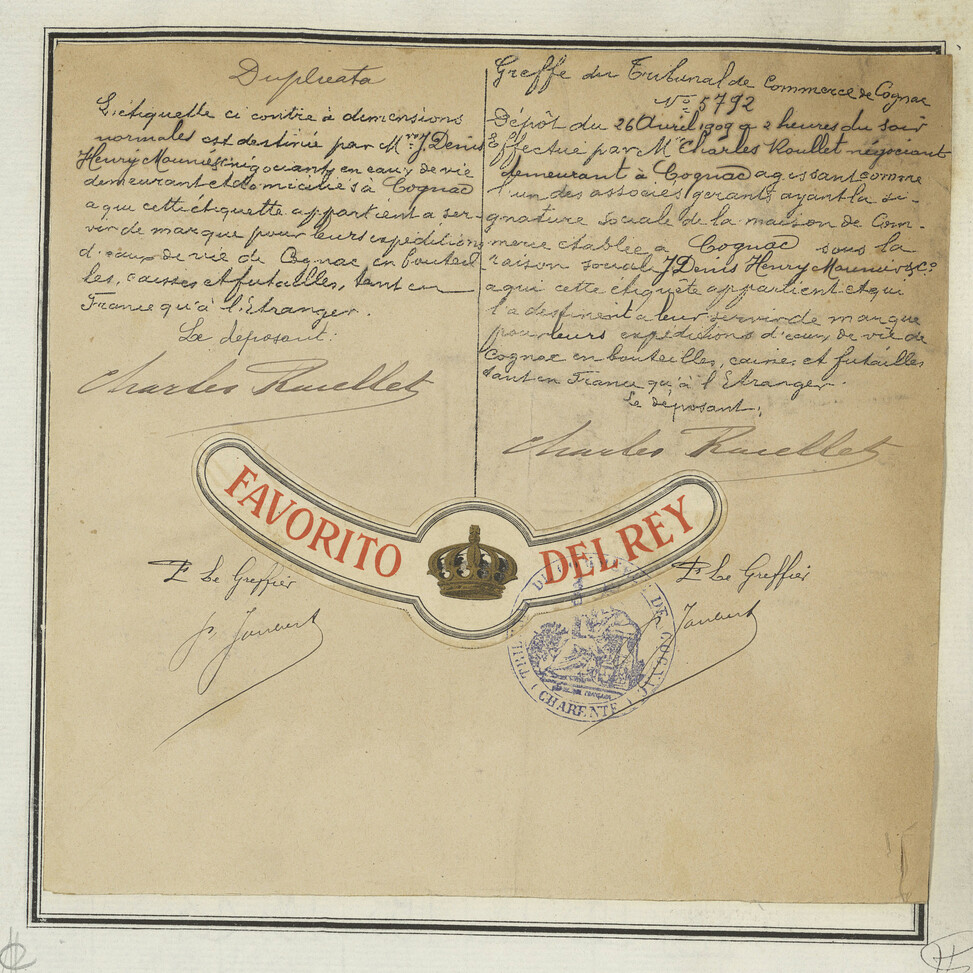 Duplicata
L'étiquette ci contre à dimensions
normales est destinée par Mrs J. Denis
Henry Mounié & négociants en eaux de vie
demeurant et domiciliés à Cognac
a qui cette étiquette appartient a ser-
vir de marque pour leurs expéditions
d'eaux de vie de Cognac en bouteil
les, caisses et futailles, tant en
France qu'à l'Etranger.
Le déposant:
Charles Roullet
Greffe du Tribunal de Commerce de Cognac
No 5792
Dépôt du 26 Avril 1909 a 2 heures du soir
Effectué par Mr Charles Roullet négociant
demeurant à Cognac agissant comme
l'un des associés gerants ayant la si-
gnature sociale de la maison de Com-
merce etablie a Cognac sous la
raison social J Denis Henry Mounier & Co
a qui cette étiquète appartient et qui
l'a destinent a leur servir de marque
pour leurs expéditions d'eaux de vie de
Cognac en bouteilles, caisses et futailles
tant en France qu'à l'Etranger.
Le déposant;
Charles Roullet
FAVORITO DEL REY
Le Greffier
Le Greffier
DE COGNAC
CHARENTE